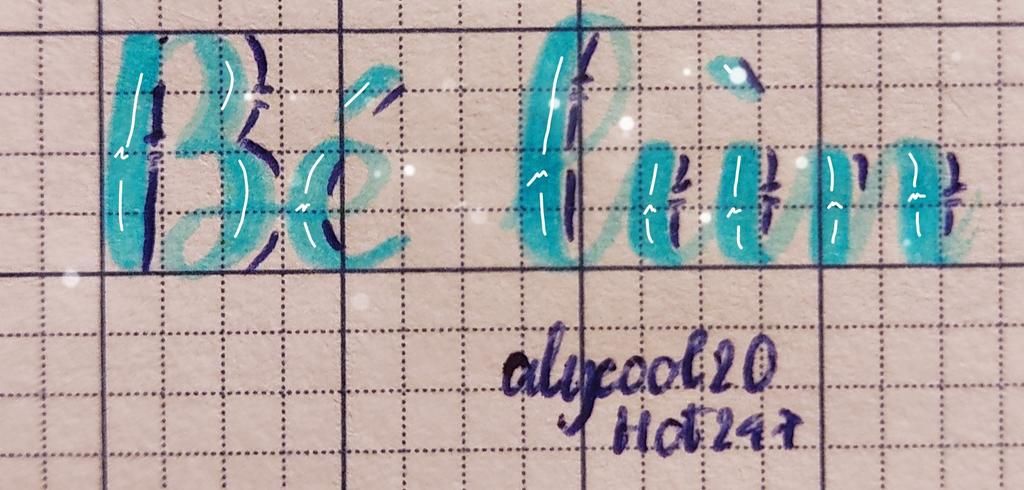 Bé lùn
alycool20
Hot247